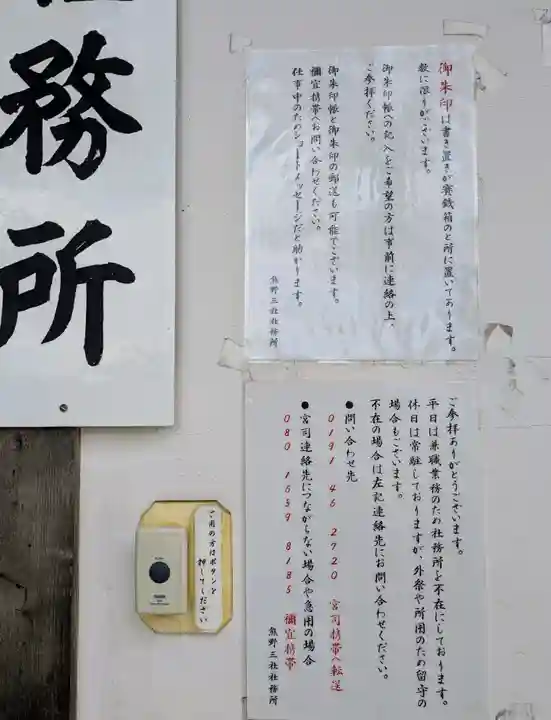 務所
御朱印は書き置きが賽銭箱のと所に置いてあります。
数に限りがございます。
御朱印帳への記入をご希望の方は事前に連絡の上、
ご参拝ください。
御朱印帳と御朱印の郵送も可能でございます。
禰宜携帯へお問い合わせください。
仕事中のためショートメッセージだと助かります。
熊野三社社務所
ご参拝ありがとうございます。
平日は兼職業務のため社務所を不在にしております。
休日は常駐しておりますが、外祭や所用のため留守の
場合もございます。
不在の場合は左記連絡先にお問い合わせください。
●問い合わせ先
0191 46 2720 宮司携帯へ転送
●宮司連絡先につながらない場合や急用の場合
080 1659 8185 禰宜携帯
熊野三社社務所
ご用の方はボタンを
押してください